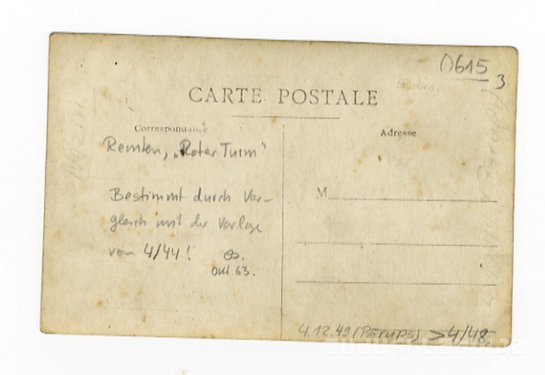 0615
3
CARTE POSTALE
Correspondance
Adresse
Remten, „Roter Turm"
Bestimmt durch Ver-
gleich mit der Vorlage
vom 4/44!
Okt 63.
M
4.12.49 (Parups) > 4/48